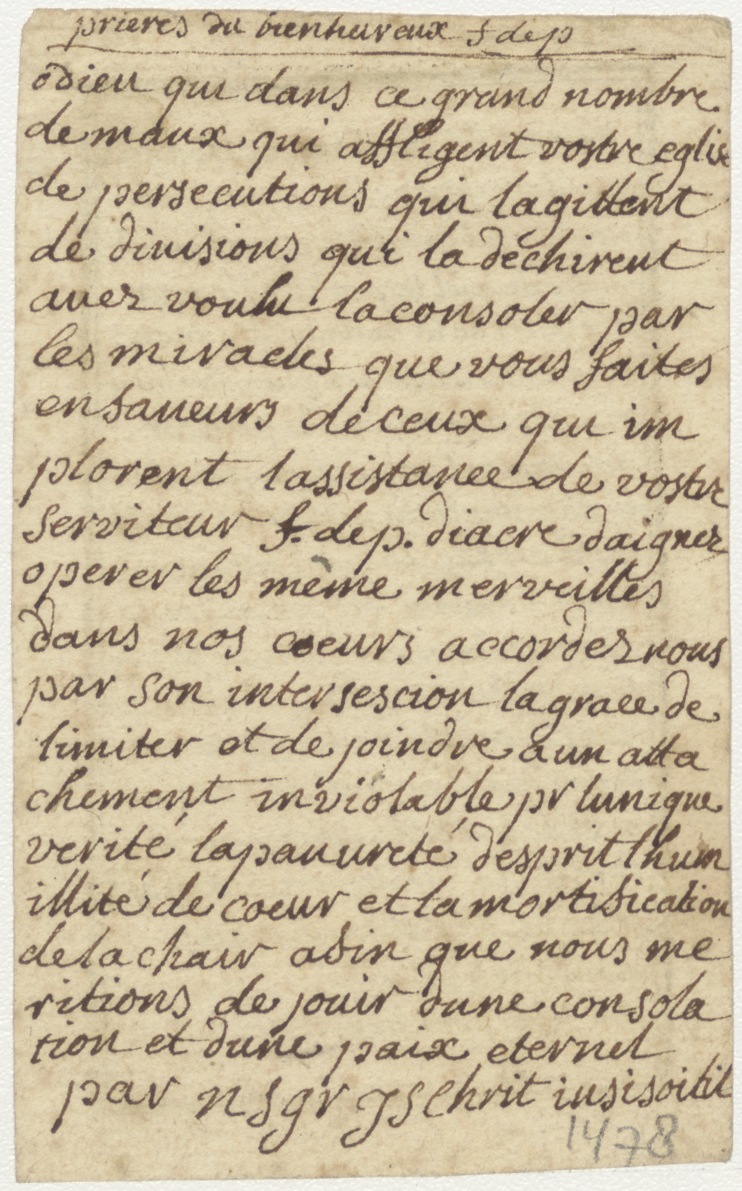 prieres du bienhureux f dep
ôdieu qui dans ce grand nombre
de maux qui affligent vostre eglise
de persecutions qui lagittent
de divisions qui la déchirent
avez voulu laconsoler par
les miracles que vous faites
enfaueurs deceux qui im
plorent lassistance de vostre
serviteur f. de p. diacre daignez
operer les même merveilles
dans nos coeurs accordez nous
par son intersescion lagrace de
limiter et de joindre a un atta
chement inviolable pr lunique
verité lapauureté desprit lhum
illité de coeur et la mortification
de la chair afin que nous me
ritions de jouir dune consola
tion et dune paix eternel
par n s gr JS Chrit insisoitil
1478